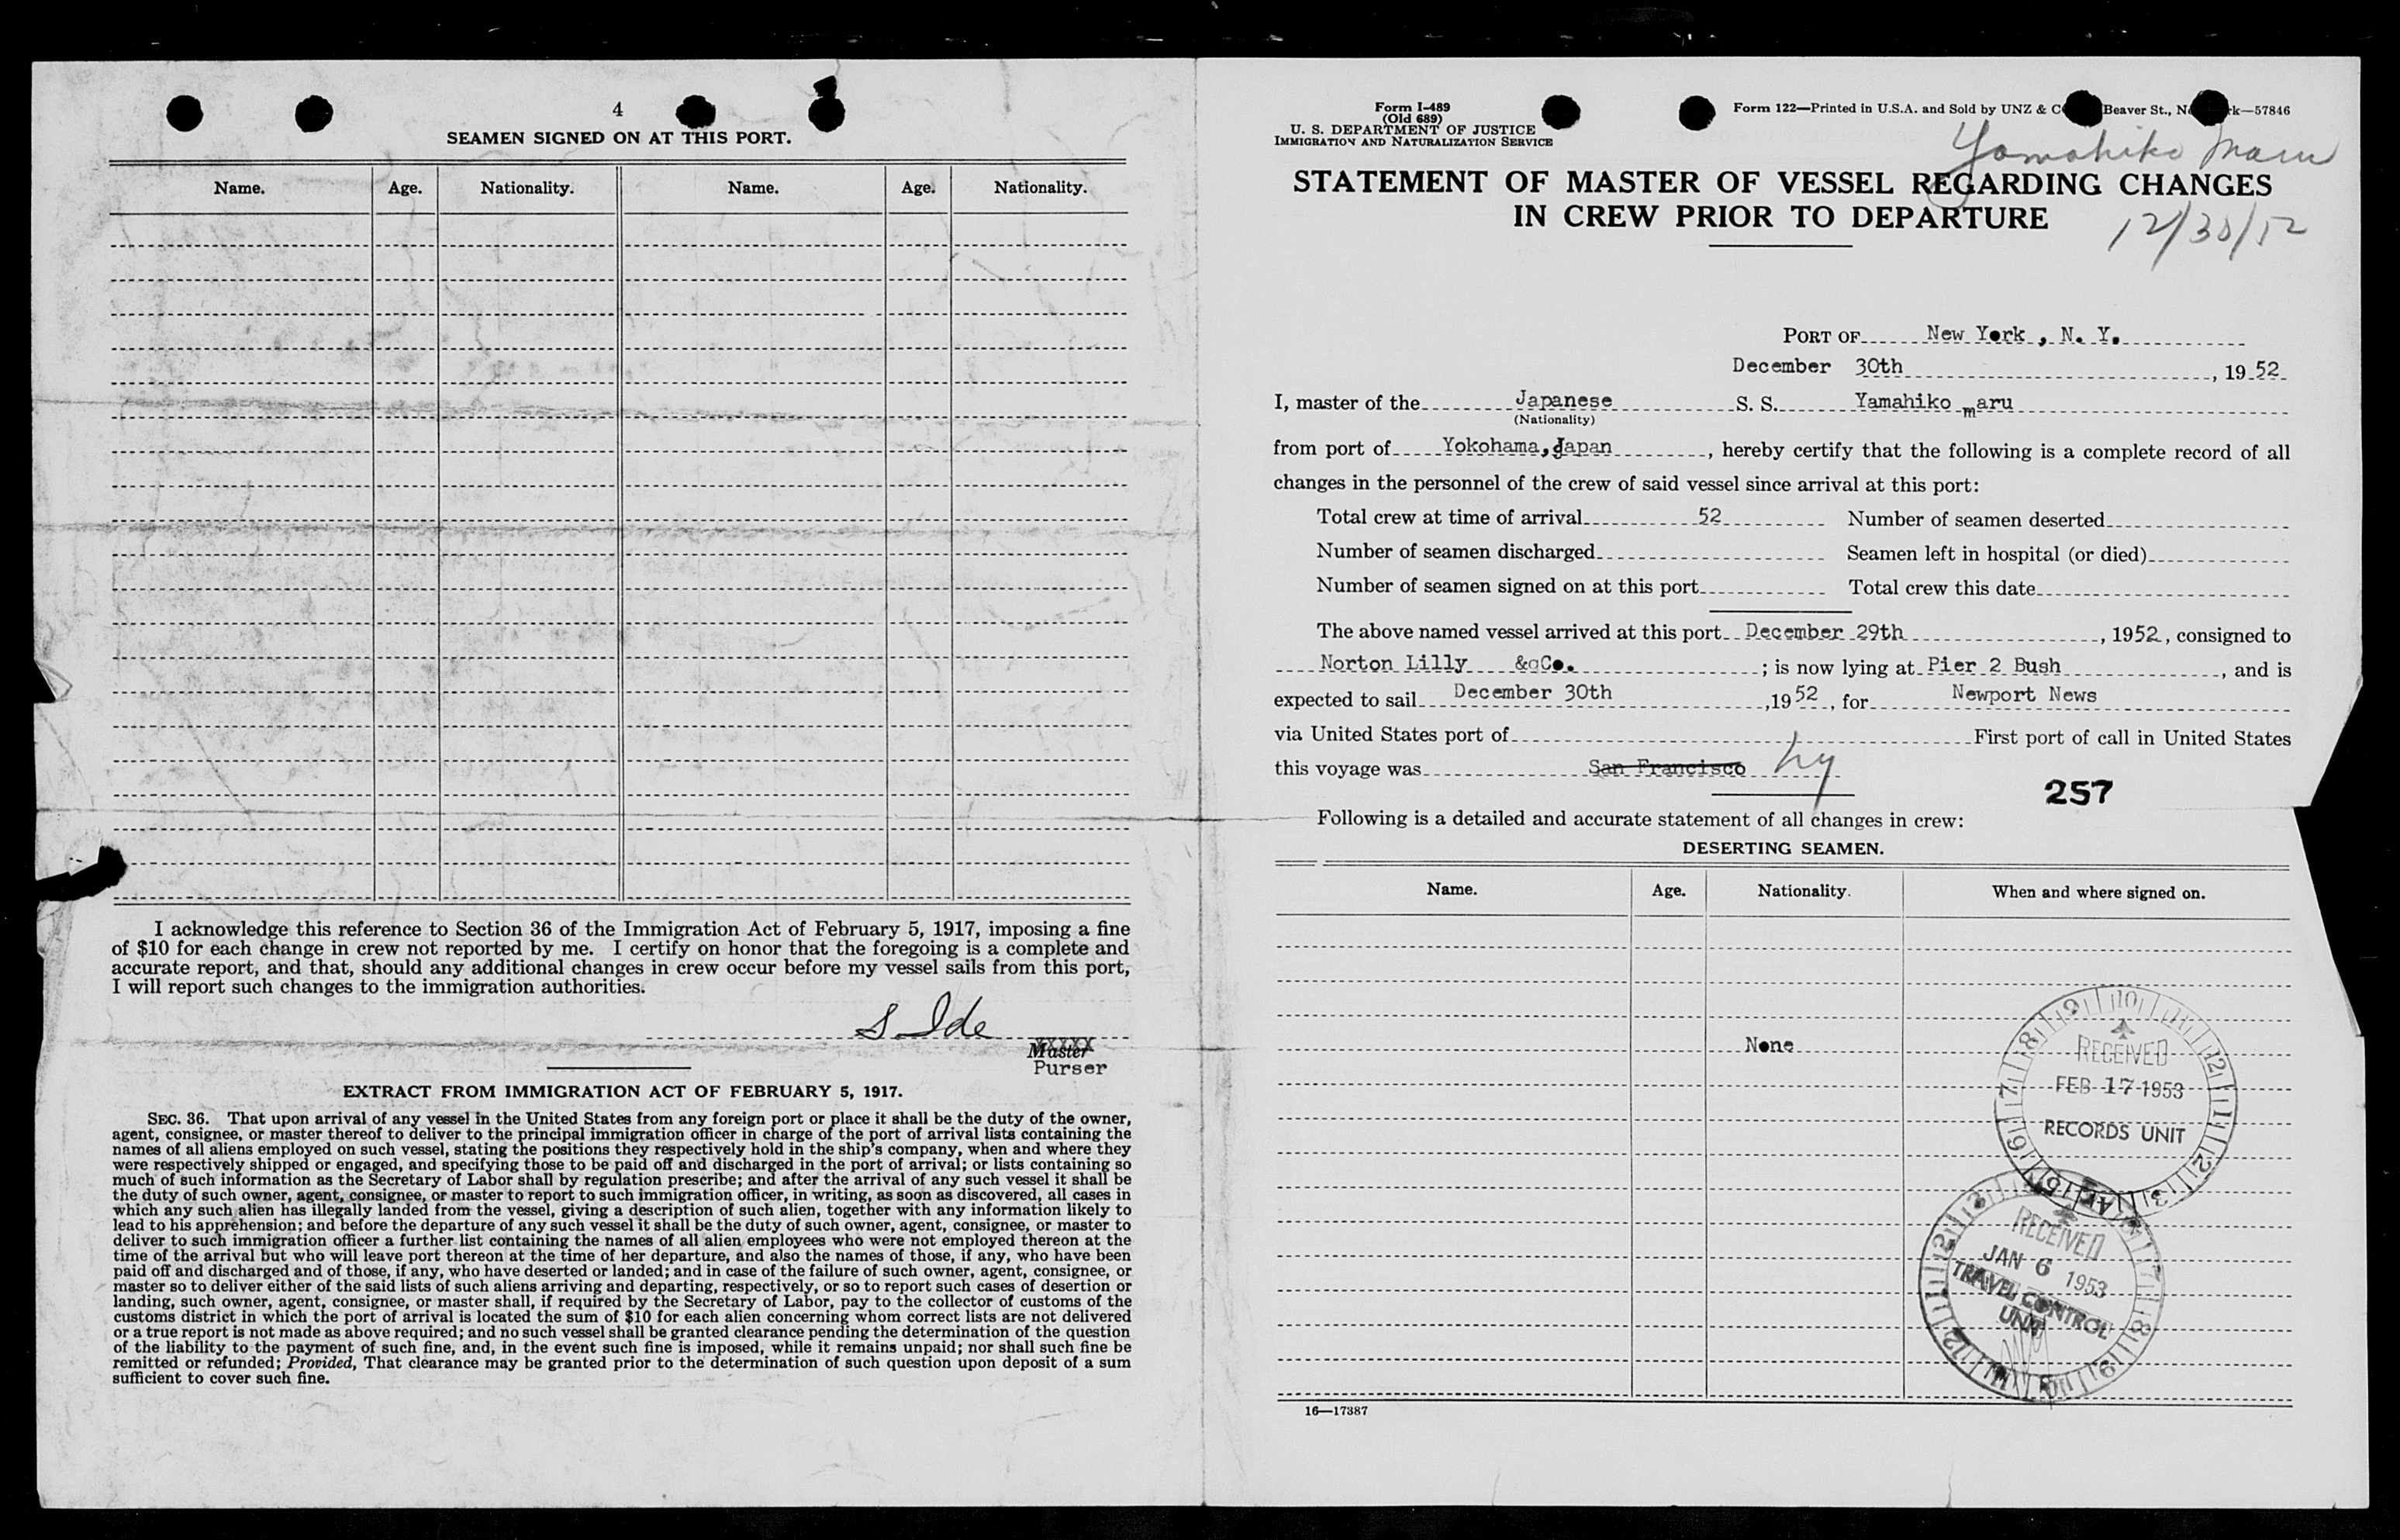 4
SEAMEN SIGNED ON AT THIS PORT.
Name. Age. Nationality. Name. Age. Nationality.
I acknowledge this reference to Section 36 of the Immigration Act of February 5, 1917, imposing a fine
of $10 for each change in crew not reported by me. I certify on honor that the foregoing is a complete and
accurate report, and that, should any additional changes in crew occur before my vessel sails from this port,
I will report such changes to the immigration authorities.
S. Ide
Master
Purser
EXTRACT FROM IMMIGRATION ACT OF FEBRUARY 5, 1917.
SEC. 36. That upon arrival of any vessel in the United States from any foreign port or place it shall be the duty of the owner,
agent, consignee, or master thereof to deliver to the principal immigration officer in charge of the port of arrival lists containing the
names of all aliens employed on such vessel, stating the positions they respectively hold in the ship's company, when and where they
were respectively shipped or engaged, and specifying those to be paid off and discharged in the port of arrival; or lists containing so
much of such information as the Secretary of Labor shall by regulation prescribe; and after the arrival of any such vessel it shall be
the duty of such owner, agent, consignee, or master to report to such immigration officer, in writing, as soon as discovered, all cases in
which any such alien has illegally landed from the vessel, giving a description of such alien, together with any information likely to
lead to his apprehension; and before the departure of any such vessel it shall be the duty of such owner, agent, consignee, or master to
deliver to such immigration officer a further list containing the names of all alien employees who were not employed thereon at the
time of the arrival but who will leave port thereon at the time of her departure, and also the names of those, if any, who have been
paid off and discharged and of those, if any, who have deserted or landed; and in case of the failure of such owner, agent, consignee, or
master so to deliver either of the said lists of such aliens arriving and departing, respectively, or so to report such cases of desertion or
landing, such owner, agent, consignee, or master shall, if required by the Secretary of Labor, pay to the collector of customs of the
customs district in which the port of arrival is located the sum of $10 for each alien concerning whom correct lists are not delivered
or a true report is not made as above required; and no such vessel shall be granted clearance pending the determination of the question
of the liability to the payment of such fine, and, in the event such fine is imposed, while it remains unpaid; nor shall such fine be
remitted or refunded; Provided, That clearance may be granted prior to the determination of such question upon deposit of a sum
sufficient to cover such fine.
Form I-489
(Old 689)
U. S. DEPARTMENT OF JUSTICE
IMMIGRATION AND NATURALIZATION SERVICE
Form 122—Printed in U.S.A. and Sold by UNZ & C Beaver St., N k—57846
Yamahiko Maru
STATEMENT OF MASTER OF VESSEL REGARDING CHANGES
IN CREW PRIOR TO DEPARTURE
12/30/52
PORT OF New York , N. Y.
December 30th, 1952
I, master of the Japanese S. S. Yamahiko maru
(Nationality)
from port of Yokohama, Japan, hereby certify that the following is a complete record of all
changes in the personnel of the crew of said vessel since arrival at this port:
Total crew at time of arrival 52 Number of seamen deserted
Number of seamen discharged Seamen left in hospital (or died)
Number of seamen signed on at this port Total crew this date
The above named vessel arrived at this port December 29th, 1952, consigned to
Norton Lilly & Co. ; is now lying at Pier 2 Bush, and is
expected to sail December 30th, 1952, for Newport News
via United States port of First port of call in United States
this voyage was San Francisco ny
257
Following is a detailed and accurate statement of all changes in crew:
DESERTING SEAMEN.
Name. Age. Nationality. When and where signed on.
None
RECEIVED
FEB 17 1953
RECORDS UNIT
RECEIVED
JAN 6 1953
TRAVEL CONTROL
UNIT
16—17387